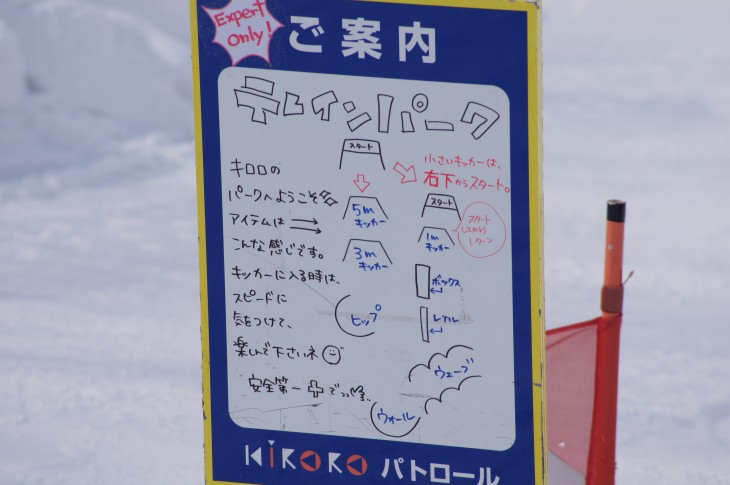 Expert
Only!
ご案内
テレインパーク
スタート
小さいキッカーは、
右下からスタート。
キロロの
パークへようこそ
アイテムは
こんな感じです。
キッカーに入る時は、
スピードに
気をつけて、
楽しんで下さいネ
安全第一
5m
キッカー
3m
キッカー
ヒップ
スタート
1m
キッカー
スタート
ターン
ボックス
レール
ウェーブ
ウォール
KIRORO パトロール